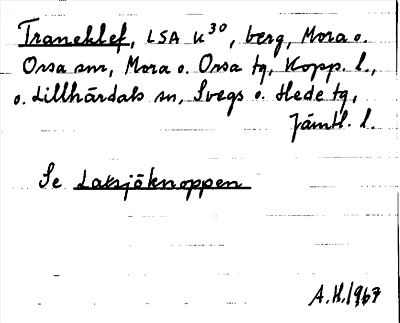 Traneklef, LSA K³⁰, berg, Mora o.
Orsa snr, Mora o. Orsa tg, Kopp. l.,
o. Lillhärdals sn, Svegs o. Hede tg,
Jämtl. l.
Se Laksjöknoppen
A.H. 1967